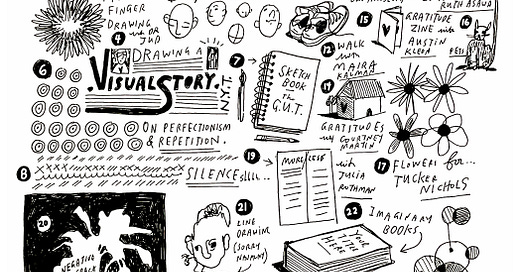 FINGER
DRAWING
4
DRAWING A
VISUAL STORY.
N.Y.T.
6
ON PERFECTIONISM
& REPETITION.
8
SILENCE
7
SKETCH
BOOK
The
G.U.T.
12
WALK
with
MAIRA
KALMAN
15
GRATITUDE
ZINE with
AUSTIN
KLEON
RUTH ASAWA
16
BESS
GRATITUDES
COURTNEY
MARTIN
17
FLOWERS for...
TUCKER
NICHOLS
19
MORE LESS
with
JULIA
ROTHMAN
20
NEGATIVE
21
LINE
(SORRY
22
IMAGINARY
BOOKS
YOUR
TITLE
HERE